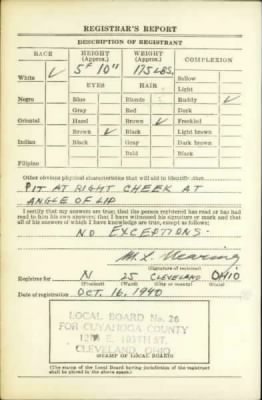 REGISTRAR'S REPORT
DESCRIPTION OF REGISTRANT
RACE HEIGHT (Approx.) WEIGHT (Approx.) COMPLEXION
5F 10" 175 LBS. Sallow
White ✓ Light
EYES HAIR Ruddy ✓
Negro Blue Blonde Dark
Gray Red Freckled
Oriental Hazel Brown ✓ Light brown
Brown ✓ Black Dark brown
Indian Black Gray Black
Bald
Filipino
Other obvious physical characteristics that will aid in identification
PIT AT RIGHT CHEEK AT
ANGLE OF LIP
I certify that my answers are true; that the person registered has read or has had
read to him his own answers; that I have witnessed his signature or mark and that
all of his answers of which I have knowledge are true, except as follows:
NO EXCEPTIONS.
(Signature of registrar)
Registrar for N 25 CLEVELAND OHIO
(Precinct) (Ward) (City or county) (State)
Date of registration OCT. 16, 1940
LOCAL BOARD No. 26
FOR CUYAHOGA COUNTY
E. 105TH ST.
CLEVELAND, OHIO
(STAMP OF LOCAL BOARD)
(The stamp of the Local Board having jurisdiction of the registrant
shall be placed in the above space.)